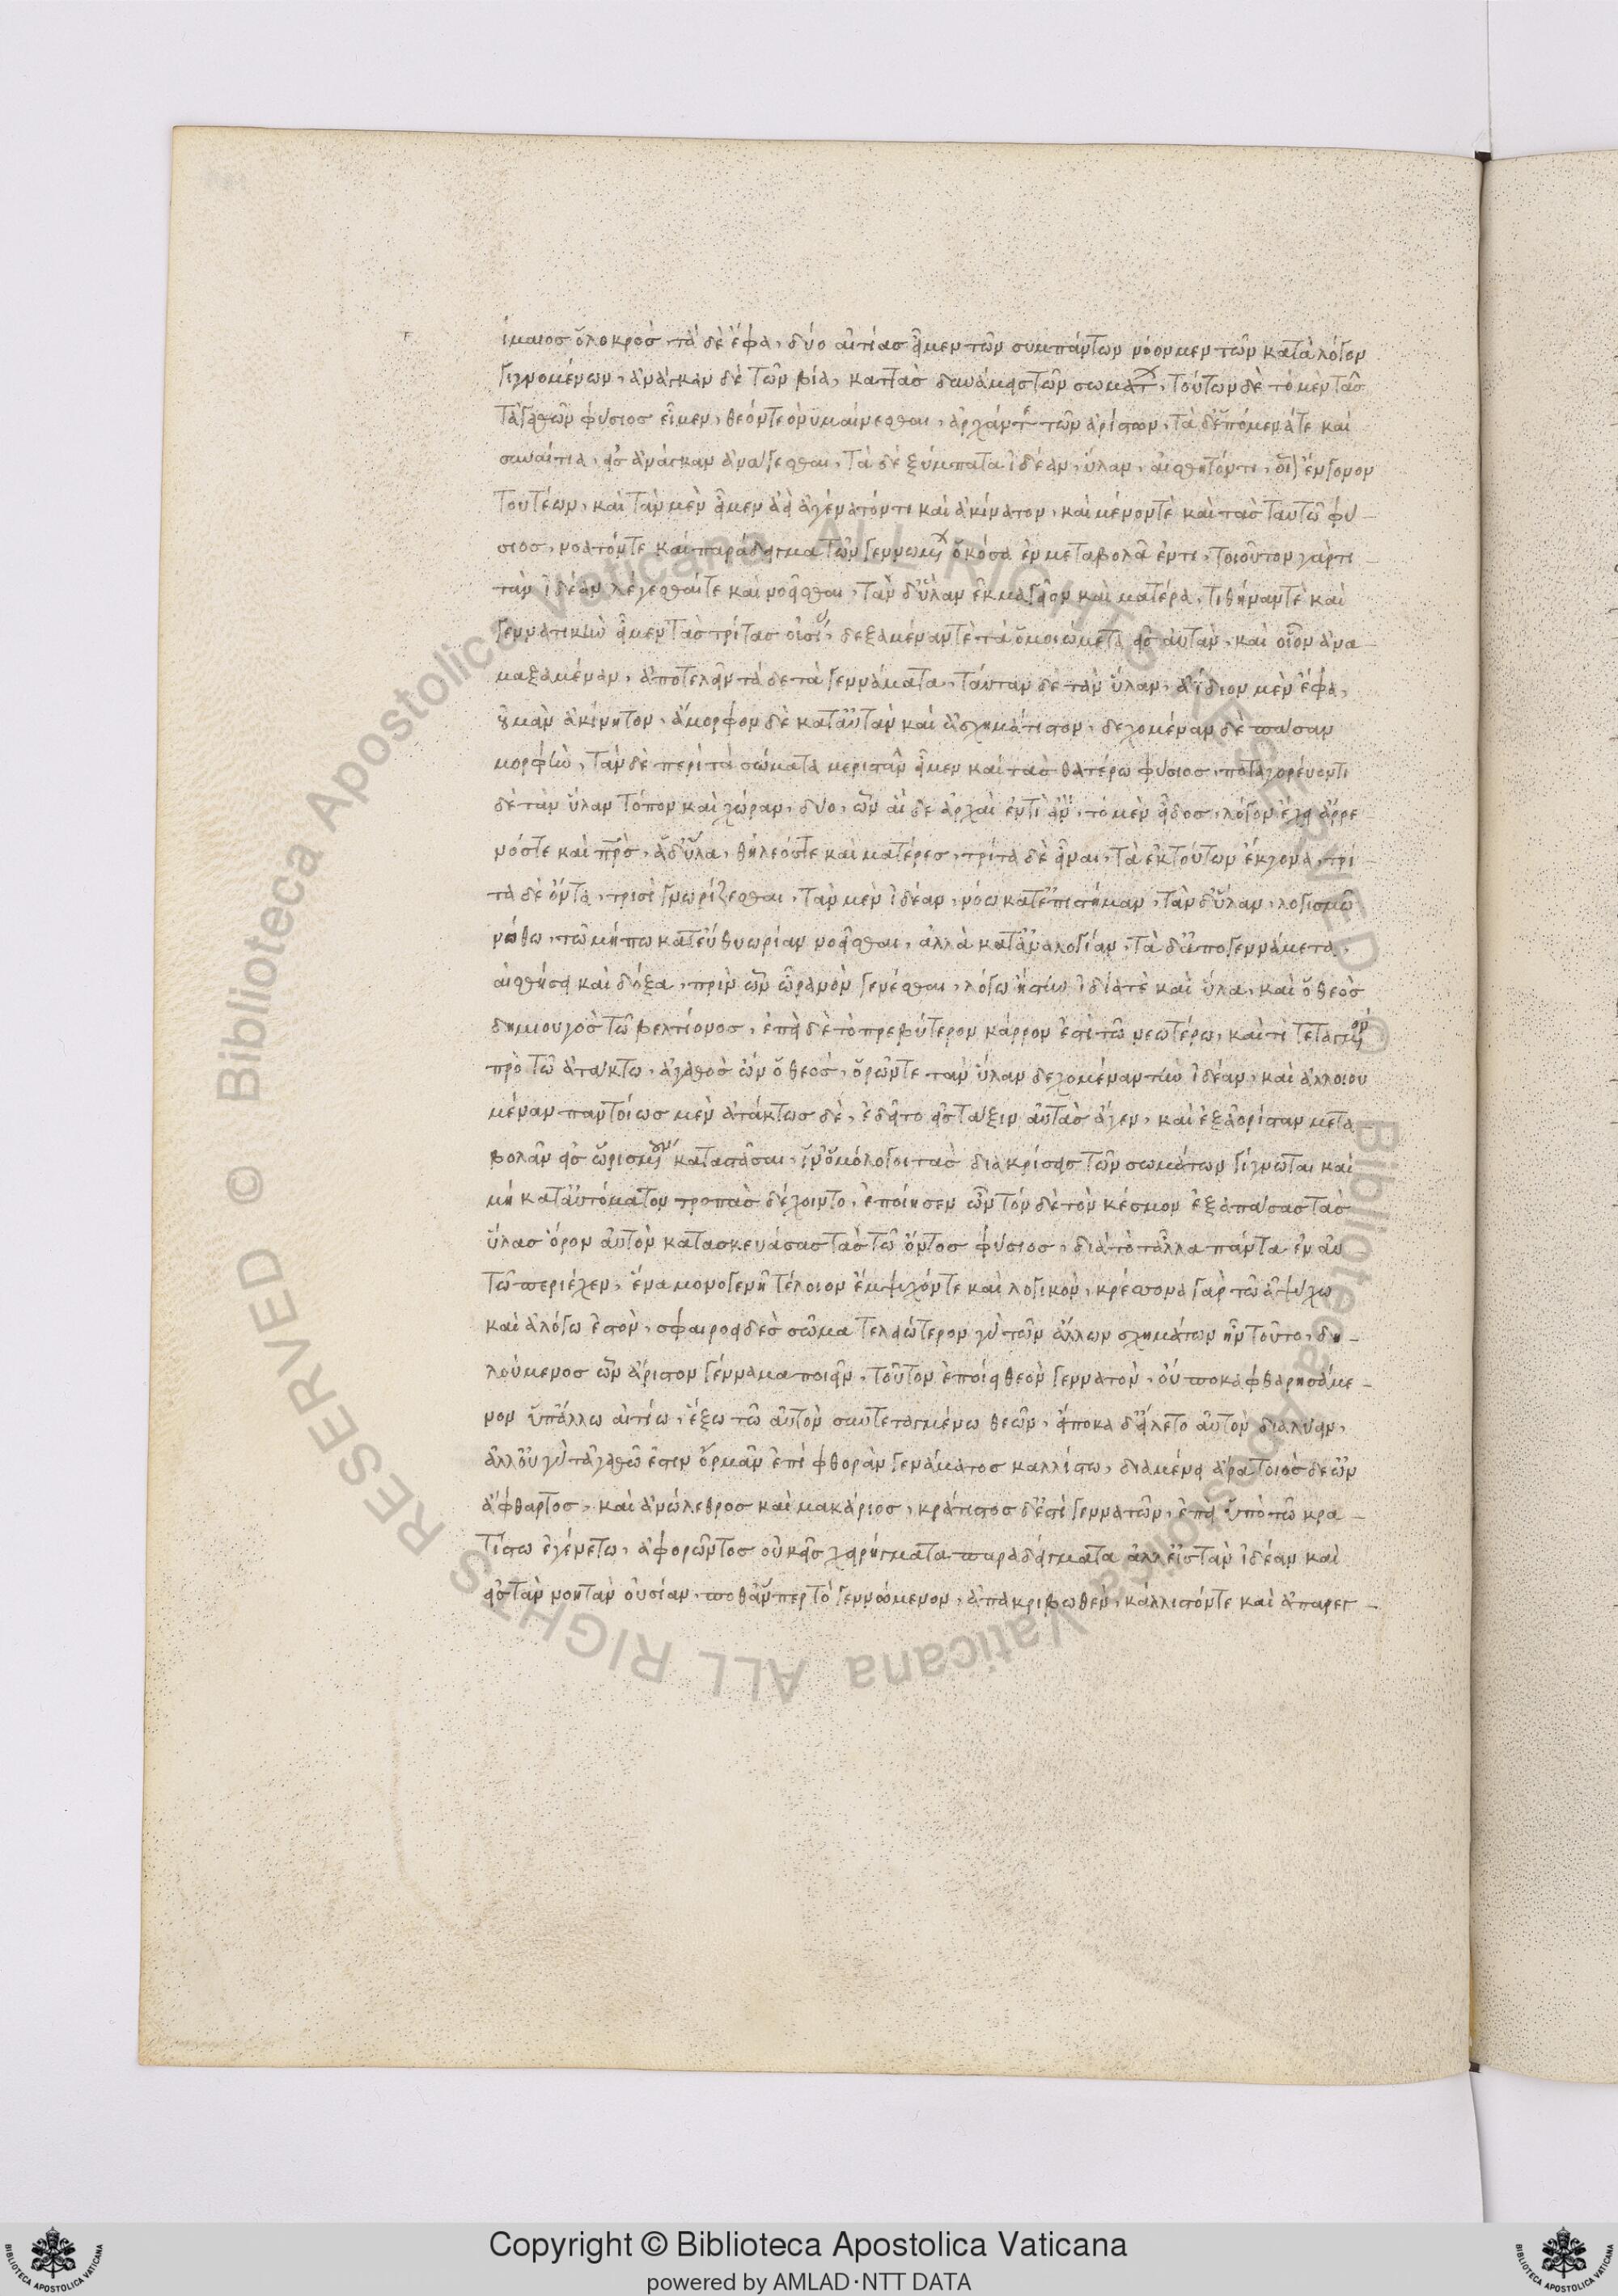 ίμαιος ὁ λοκρὸς τάδε ἔφα, δύο αἰτίας εἶμεν τῶν συμπάντων νόον μεν τῶν κατὰ λόγον
γιγνομένων, ἀνάγκαν δὲ τῶν βία, καττὰς δυνάμεις τῶν σωμάτ, τούτων δὲ τὸ μὲν τᾶς
τἀγαθῶ φύσιος εἶμεν, θεόν τε ὀνυμαίνεσθαι, ἀρχάν τε τῶν ἀρίστων, τὰ δ' ἑπόμενά τε καὶ
συναίτια, εἰς ἀνάγκαν ἀνάγεσθαι, τὰ δὲ ξύμπατα ἰδέαν, ὕλαν, αἰσθητόν τι, οἷ ἔκγονον
τουτέων, καὶ τὰν μὲν εἶμεν ἀεὶ ἀγένατόν τι καὶ ἀκίνατον, καὶ μένον τὲ καὶ τᾶς ταυτῶ φύ
σιος, νοατόν τε καὶ παράδειγμα τῶν γεννωμ ὁκόσα ἐν μεταβολᾶ ἐντι, τοιοῦτον γάρ τι
τὰν ἰδέαν λέγεσθαί τε καὶ νοεῖσθαι, τὰν δ' ὕλαν ἐκμαγεῖον καὶ ματέρα, τιθήναν τὲ καὶ
γεννατικὴν εἶμεν τᾶς τρίτας οὐσί, δεξαμέναν τὲ τὰ ὁμοιώματα εἰς αὐτὰν, καὶ οἷον ἀνα
μαξαμέναν, ἀποτελεῖν τάδε τὰ γεννάματα, ταύταν δὲ τὰν ὕλαν, ἀΐδιον μὲν ἔφα,
οὐ μὰν ἀκίνητον, ἄμορφον δὲ κατ' αὐτὰν καὶ ἀσχημάτιστον, δεχομέναν δὲ πᾶσαν
μορφὴν, τὰν δὲ περὶ τὰ σώματα μεριστὰν εἶμεν καὶ τᾶς θατέρω φύσιος, ποταγορεύοντι
δὲ τὰν ὕλαν τόπον καὶ χώραν, δύο, ὦν αἵδε ἀρχαὶ ἐντὶ, τὸ μὲν εἶδος, λόγον ἔχει ἄρρε
νός τε καὶ πρς, ἁ δ' ὕλα, θήλεός τε καὶ ματέρες, τρίτα δὲ εἶναι, τὰ ἐκ τούτων ἔκγονα, τρί
τα δὲ ὄντα, τρισὶ γνωρίζεσθαι, τὰν μὲν ἰδέαν, νόω κατ' ἐπιστήμαν, τὰν δ' ὕλαν, λογισμῶ
νόθω, τῶ μήπω κατ' εὐθυωρίαν νοεῖσθαι, ἀλλὰ κατ' ἀναλογίαν, τὰ δ' ἀπογεννάματα,
αἰσθήσει καὶ δόξα, πρὶν ὦν ὠρανὸν γενέσθαι, λόγω ἤστην ἰδέα τὲ καὶ ὕλα, καὶ ὁ θεὸς
δημιουργὸς τῶ βελτίονος, ἐπεὶ δὲ τὸ πρεβύτερον κάρρον ἐστὶ τῶ νεωτέρω, καὶ τὶ τεταγμον
πρὸ τῶ ἀτάκτω, ἀγαθὸς ὢν ὁ θεὸς, ὁρῶν τε τὰν ὕλαν δεχομέναν τὴν ἰδέαν, καὶ ἀλλοιου
μέναν παντοίως μὲν ἀτάκτως δὲ, ἐδεῖτο εἰς τάξιν αὐτὰς ἄγεν, καὶ ἐξ ἀορίσταν μετα
βολᾶν εἰς ὡρισμ καταστᾶσαι, ἵν' ὁμόλογοι τὰς διακρίσεις τῶν σωμάτων γίγνωται καὶ
μὴ κατ' αὐτόματον τροπὰς δέχοιντο, ἐποίησεν ὦν τόνδε τὸν κέσμον ἐξ ἁπάσας τᾶς
ὕλας ὅρον αὐτὸν κατασκευάσας τᾶς τῶ ὄντος φύσιος, διὰ τὸ τἆλλα πάντα ἐν αὐ
τῶ περιέχεν, ἕνα μονογενῆ τέλοιον ἔμψυχόν τε καὶ λογικὸν, κρέσσονα γὰρ τῶ ἀψύχω
καὶ ἀλόγω ἐστὸν, σφαιροειδὲς σῶμα τελειώτερον γὰρ τῶν ἄλλων σχημάτων ἦν τοῦτο, δη
λούμενος ὦν ἄριστον γένναμα ποιεῖν, τοῦτον ἐποίει θεὸν γεννατὸν, οὔποκα φθαρησόμε
νον ὑπ' ἄλλω αἰτίω, ἔξω τῶ αὐτὸν συντεταγμένω θεῶ, εἴποκα δείλετο αὐτὸν διαλύειν,
ἀλλ' οὐ γὰρ τἀγαθῶ ἐστιν ὁρμᾶν ἐπὶ φθορὰν γενάματος καλλίστω, διαμένει ἄρα τοιόσδε ὢν
ἄφθαρτος, καὶ ἀνώλεθρος καὶ μακάριος, κράτιστος δ' ἐστὶ γεννατῶν, ἐπεὶ ὑπὸ τῶ κρα
τίστω ἐγένετο, ἀφορῶντος οὐκ εἰς χειρήγματα παραδείγματα ἀλλ' εἰς τὰν ἰδέαν καὶ
εἰς τὰν νοητὰν οὐσίαν, ποθ' ἅνπερ τὸ γεννώμενον, ἀπακριβωθὲν, κάλλιστόν τε καὶ ἀπαρεγ